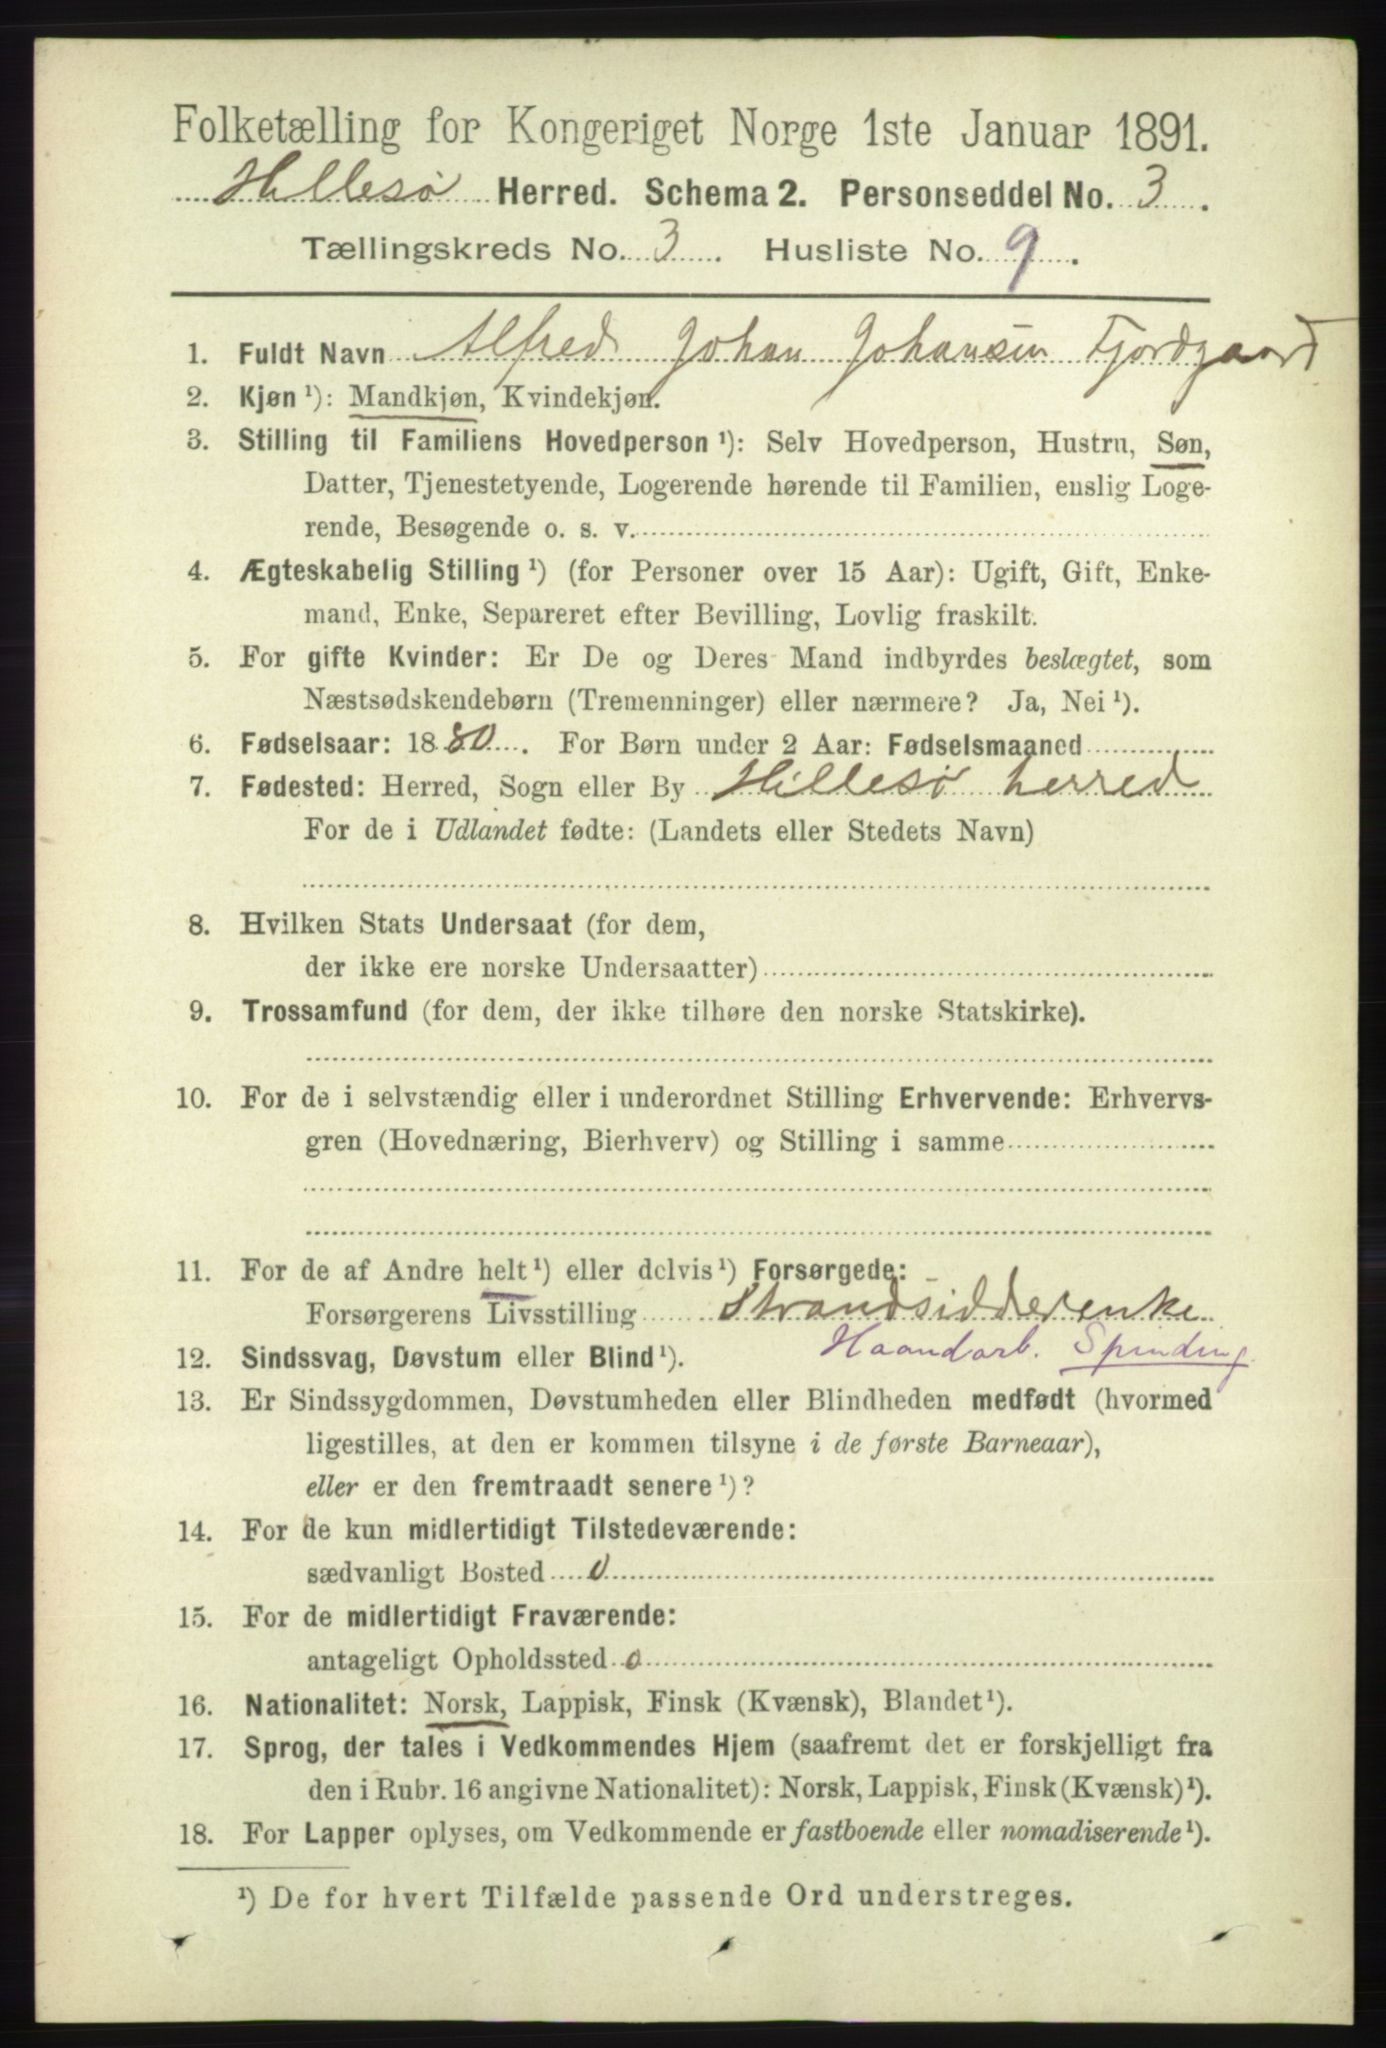 Folketælling for Kongeriget Norge 1ste Januar 1891.
Hillesø Herred. Schema 2. Personseddel No. 3.
Tællingskreds No. 3. Husliste No. 9.
1. Fuldt Navn Alfred Johan Johansen Fjordgaard
2. Kjøn ¹): Mandkjøn, Kvindekjøn.
3. Stilling til Familiens Hovedperson ¹): Selv Hovedperson, Hustru, Søn,
Datter, Tjenestetyende, Logerende hørende til Familien, enslig Loge-
rende, Besøgende o. s. v.
4. Ægteskabelig Stilling ¹) (for Personer over 15 Aar): Ugift, Gift, Enke-
mand, Enke, Separeret efter Bevilling, Lovlig fraskilt.
5. For gifte Kvinder: Er De og Deres Mand indbyrdes beslægtet, som
Næstsødskendebørn (Tremenninger) eller nærmere? Ja, Nei ¹).
6. Fødselsaar: 1880. For Børn under 2 Aar: Fødselsmaaned
7. Fødested: Herred, Sogn eller By Hillesø herred
For de i Udlandet fødte: (Landets eller Stedets Navn)
8. Hvilken Stats Undersaat (for dem,
der ikke ere norske Undersaatter)
9. Trossamfund (for dem, der ikke tilhøre den norske Statskirke).
10. For de i selvstændig eller i underordnet Stilling Erhvervende: Erhvervs-
gren (Hovednæring, Bierhverv) og Stilling i samme
11. For de af Andre helt ¹) eller delvis ¹) Forsørgede:
Forsørgerens Livsstilling Strandsidderenke
Haandarb. Spinding.
12. Sindssvag, Døvstum eller Blind ¹).
13. Er Sindssygdommen, Døvstumheden eller Blindheden medfødt (hvormed
ligestilles, at den er kommen tilsyne i de første Barneaar),
eller er den fremtraadt senere ¹)?
14. For de kun midlertidigt Tilstedeværende:
sædvanligt Bosted 0
15. For de midlertidigt Fraværende:
antageligt Opholdssted 0
16. Nationalitet: Norsk, Lappisk, Finsk (Kvænsk), Blandet ¹).
17. Sprog, der tales i Vedkommendes Hjem (saafremt det er forskjelligt fra
den i Rubr. 16 angivne Nationalitet): Norsk, Lappisk, Finsk (Kvænsk) ¹).
18. For Lapper oplyses, om Vedkommende er fastboende eller nomadiserende ¹).
¹) De for hvert Tilfælde passende Ord understreges.